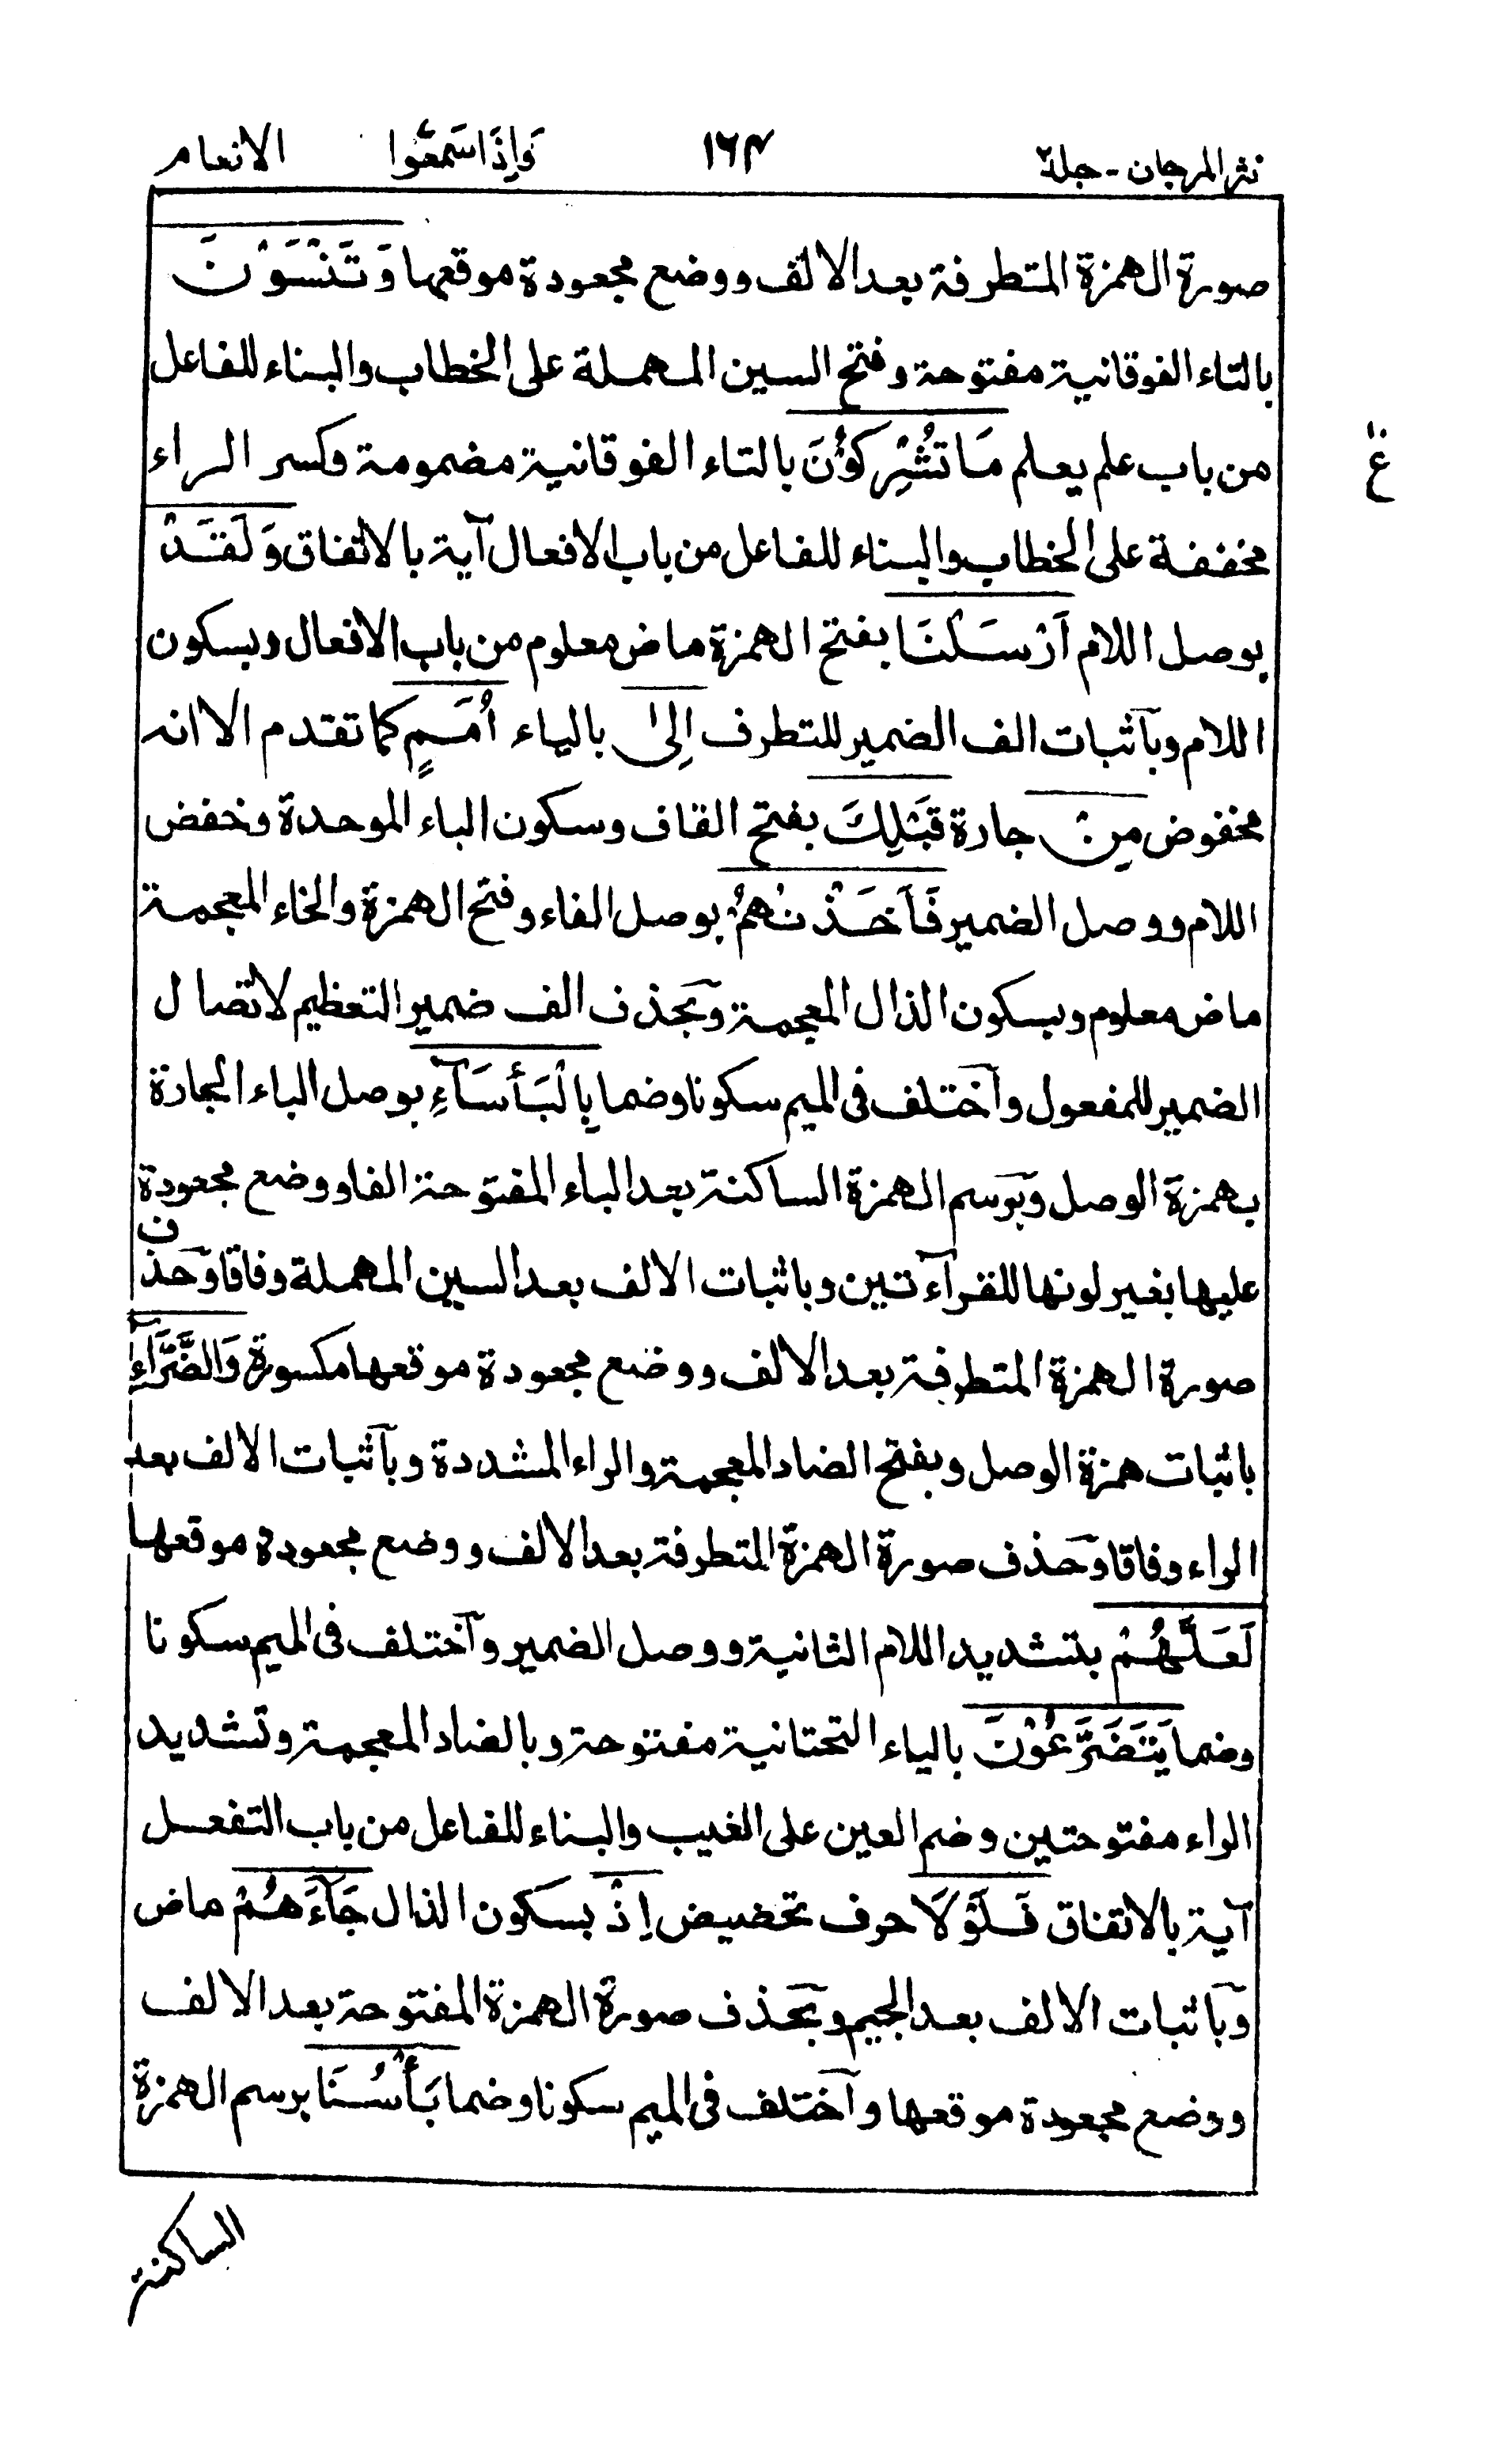 نثر المرجان - جلد٢ ١٦٤ وَإِذَا سَمِعُوا الانعام
صورة الهمزة المتطرفة بعد الالف ووضع مجعودة موقعها وَتَنْسَوْنَ
بالتاء الفوقانية مفتوحة وفتح السين المهملة على الخطاب والبناء للفاعل
من باب علم يعلم مَا تُشْرِكُوْنَ بالتاء الفوقانية مضمومة وكسر الراء
مخففة على الخطاب والبناء للفاعل من باب الافعال آية بالاتفاق وَلَقَدْ
بوصل اللام اَرْسَلْنَا بفتح الهمزة ماض معلوم من باب الافعال وبسكون
اللام وبآثبات الف الضمير للتطرف اِلٰى بالياء اُمَمٍ كما تقدم الا انه
مخفوض مِنْ جارة قَبْلِكَ بفتح القاف وسكون الباء الموحدة وخفض
اللام ووصل الضمير فَاَخَذْنٰهُمْ بوصل الفاء وفتح الهمزة والخاء المعجمة
ماض معلوم وبسكون الذال المعجمة وبحذف الف ضمير التعظيم لاتصال
الضمير للمفعول وآختلف فى الميم سكونا وضما بِالْبَأْسَآءِ بوصل الباء الجارة
بهمزة الوصل وبرسم الهمزة الساكنة بعد الباء المفتوحة الفا ووضع مجعودة
عليها بغير لونها للقرآءتين وباثبات الالف بعد السين المهملة وفاقا وحذف
صورة الهمزة المتطرفة بعد الالف ووضع مجعودة موقعها مكسورة وَالضَّرَّآءِ
باثبات همزة الوصل وبفتح الضاد المعجمة والراء المشددة وبآثبات الالف بعد
الراء وفاقا وحذف صورة الهمزة المتطرفة بعد الالف ووضع مجعودة موقعها
لَعَلَّهُمْ بتشديد اللام الثانية ووصل الضمير وآختلف فى الميم سكونا
وضما يَتَضَرَّعُوْنَ بالياء التحتانية مفتوحة وبالضاد المعجمة وتشديد
الراء مفتوحتين وضم العين على الغيب والبناء للفاعل من باب التفعل
آية بالاتفاق فَلَوْلَا حرف تحضيض اِذْ بسكون الذال جَآءَهُمْ ماض
وبآثبات الالف بعد الجيم وبحذف صورة الهمزة المفتوحة بعد الالف
ووضع مجعودة موقعها وآختلف فى الميم سكونا وضما بَأْسُنَا برسم الهمزة
الساكنة